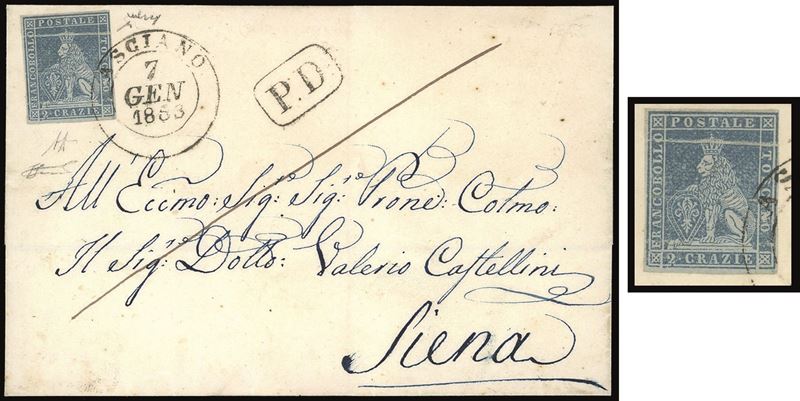 FRANCOBOLLO POSTALE TOSCANO
2 CRAZIE
ASCIANO
7
GEN
1853
P.D
All' Eccmo: Sigr: Sigr: Prone: Colmo:
Il Sigr: Dotto: Valerio Castellini
Siena
FRANCOBOLLO POSTALE TOSCANO
2 CRAZIE